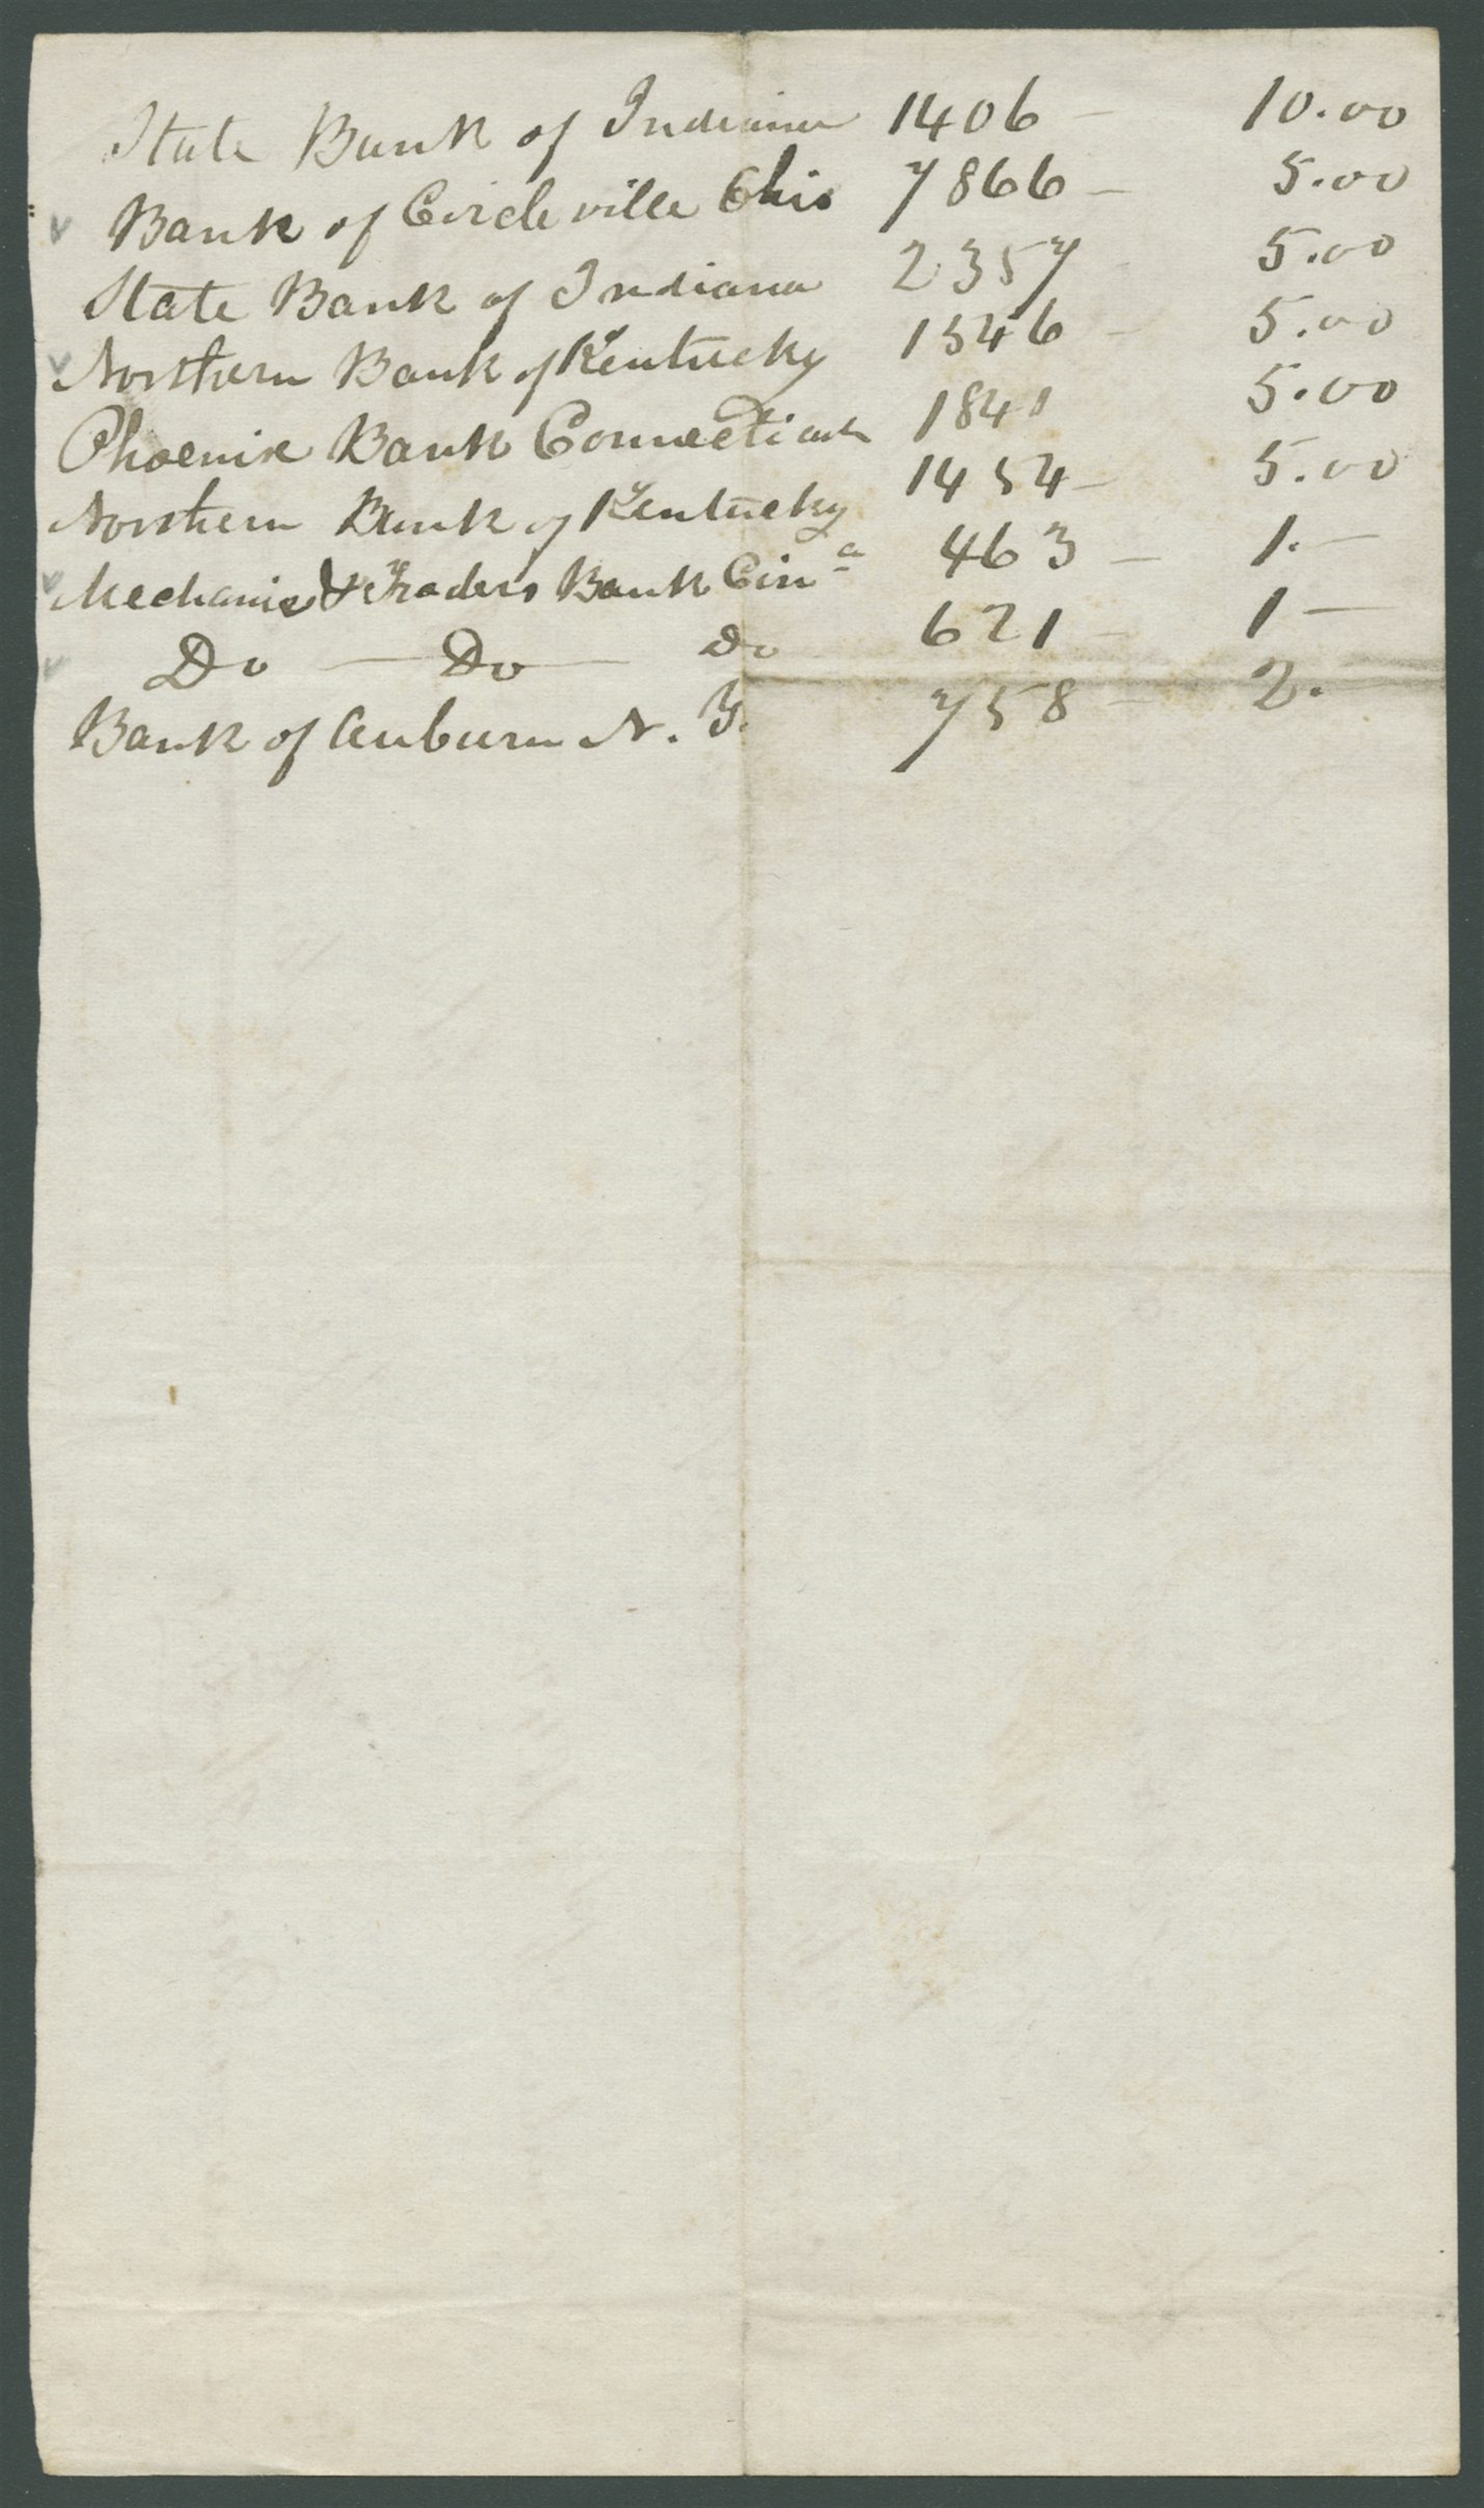 State Bank of Indiana 1406 — 10.00
v Bank of Circleville Ohio 7866 — 5.00
State Bank of Indiana 2357 — 5.00
v Northern Bank of Kentucky 1546 — 5.00
Phoenix Bank Connecticut 1841 5.00
Northern Bank of Kentucky 1454 — 5.00
v Mechanics & Traders Bank Cinᵃ 463 — 1.—
v Do — Do — Do 621 — 1 —
Bank of Auburn N. Y. 758 — 2.—